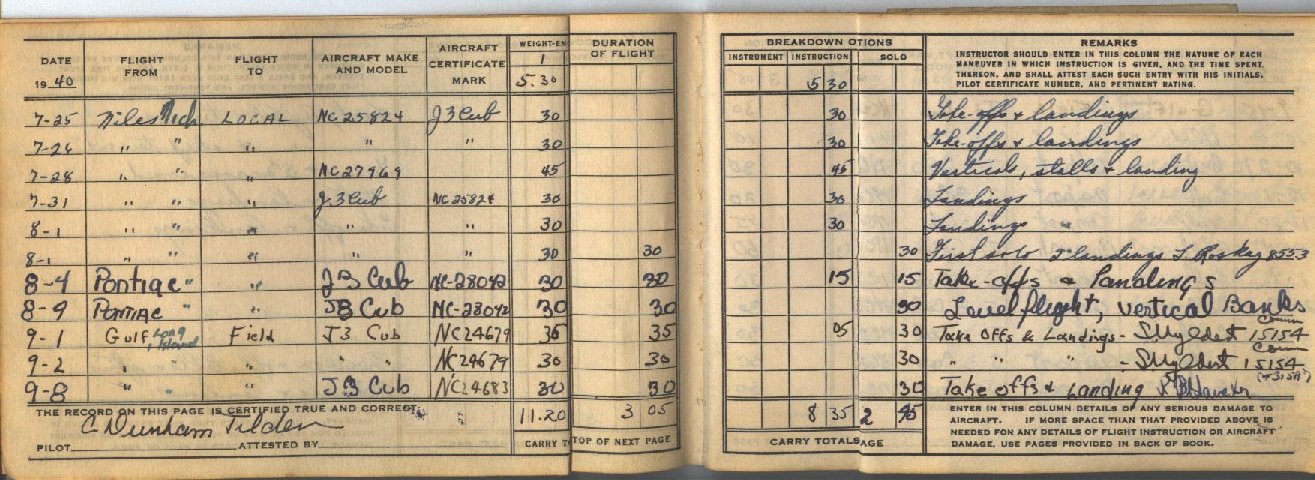 DATE FLIGHT FROM FLIGHT TO AIRCRAFT MAKE AND MODEL AIRCRAFT CERTIFICATE MARK WEIGHT-EN DURATION OF FLIGHT BREAKDOWN OTIONS INSTRUMENT INSTRUCTION SOLO REMARKS
INSTRUCTOR SHOULD ENTER IN THIS COLUMN THE NATURE OF EACH
MANEUVER IN WHICH INSTRUCTION IS GIVEN, AND THE TIME SPENT
THEREON, AND SHALL ATTEST EACH SUCH ENTRY WITH HIS INITIALS,
PILOT CERTIFICATE NUMBER, AND PERTINENT RATING.
1940 1 5.30 5 30
7-25 Niles Mich LOCAL NC 25824 J3 Cub 30 30 Take-offs & landings
7-26 " " " " " 30 30 Take-offs & landings
7-28 " " " NC27969 45 45 Verticals, stalls & landing
7-31 " " " J.3 Cub NC 25824 30 30 Landings
8-1 " " " " " 30 30 Landings "
8-1 " " " " " 30 30 30 First solo landings 8553
8-4 Pontiac " " J3 Cub NC-28042 30 30 15 15 Take-offs & landings
8-9 Pontiac " " J3 Cub NC-28042 30 30 30 Level flight, vertical Banks
9-1 Gulf, Long Island Field J3 Cub NC24679 35 35 05 30 Take Offs & Landings - 15154
9-2 " " " " " NC24679 30 30 30 " " " - 15154
9-8 " " " J3 Cub NC24683 30 30 30 Take offs & Landing
THE RECORD ON THIS PAGE IS CERTIFIED TRUE AND CORRECT: 11.20 3 05 8 35 2 45
C Dunham Tilden
PILOT ATTESTED BY CARRY T TOP OF NEXT PAGE CARRY TOTALS AGE
ENTER IN THIS COLUMN DETAILS OF ANY SERIOUS DAMAGE TO
AIRCRAFT. IF MORE SPACE THAN THAT PROVIDED ABOVE IS
NEEDED FOR ANY DETAILS OF FLIGHT INSTRUCTION OR AIRCRAFT
DAMAGE, USE PAGES PROVIDED IN BACK OF BOOK.